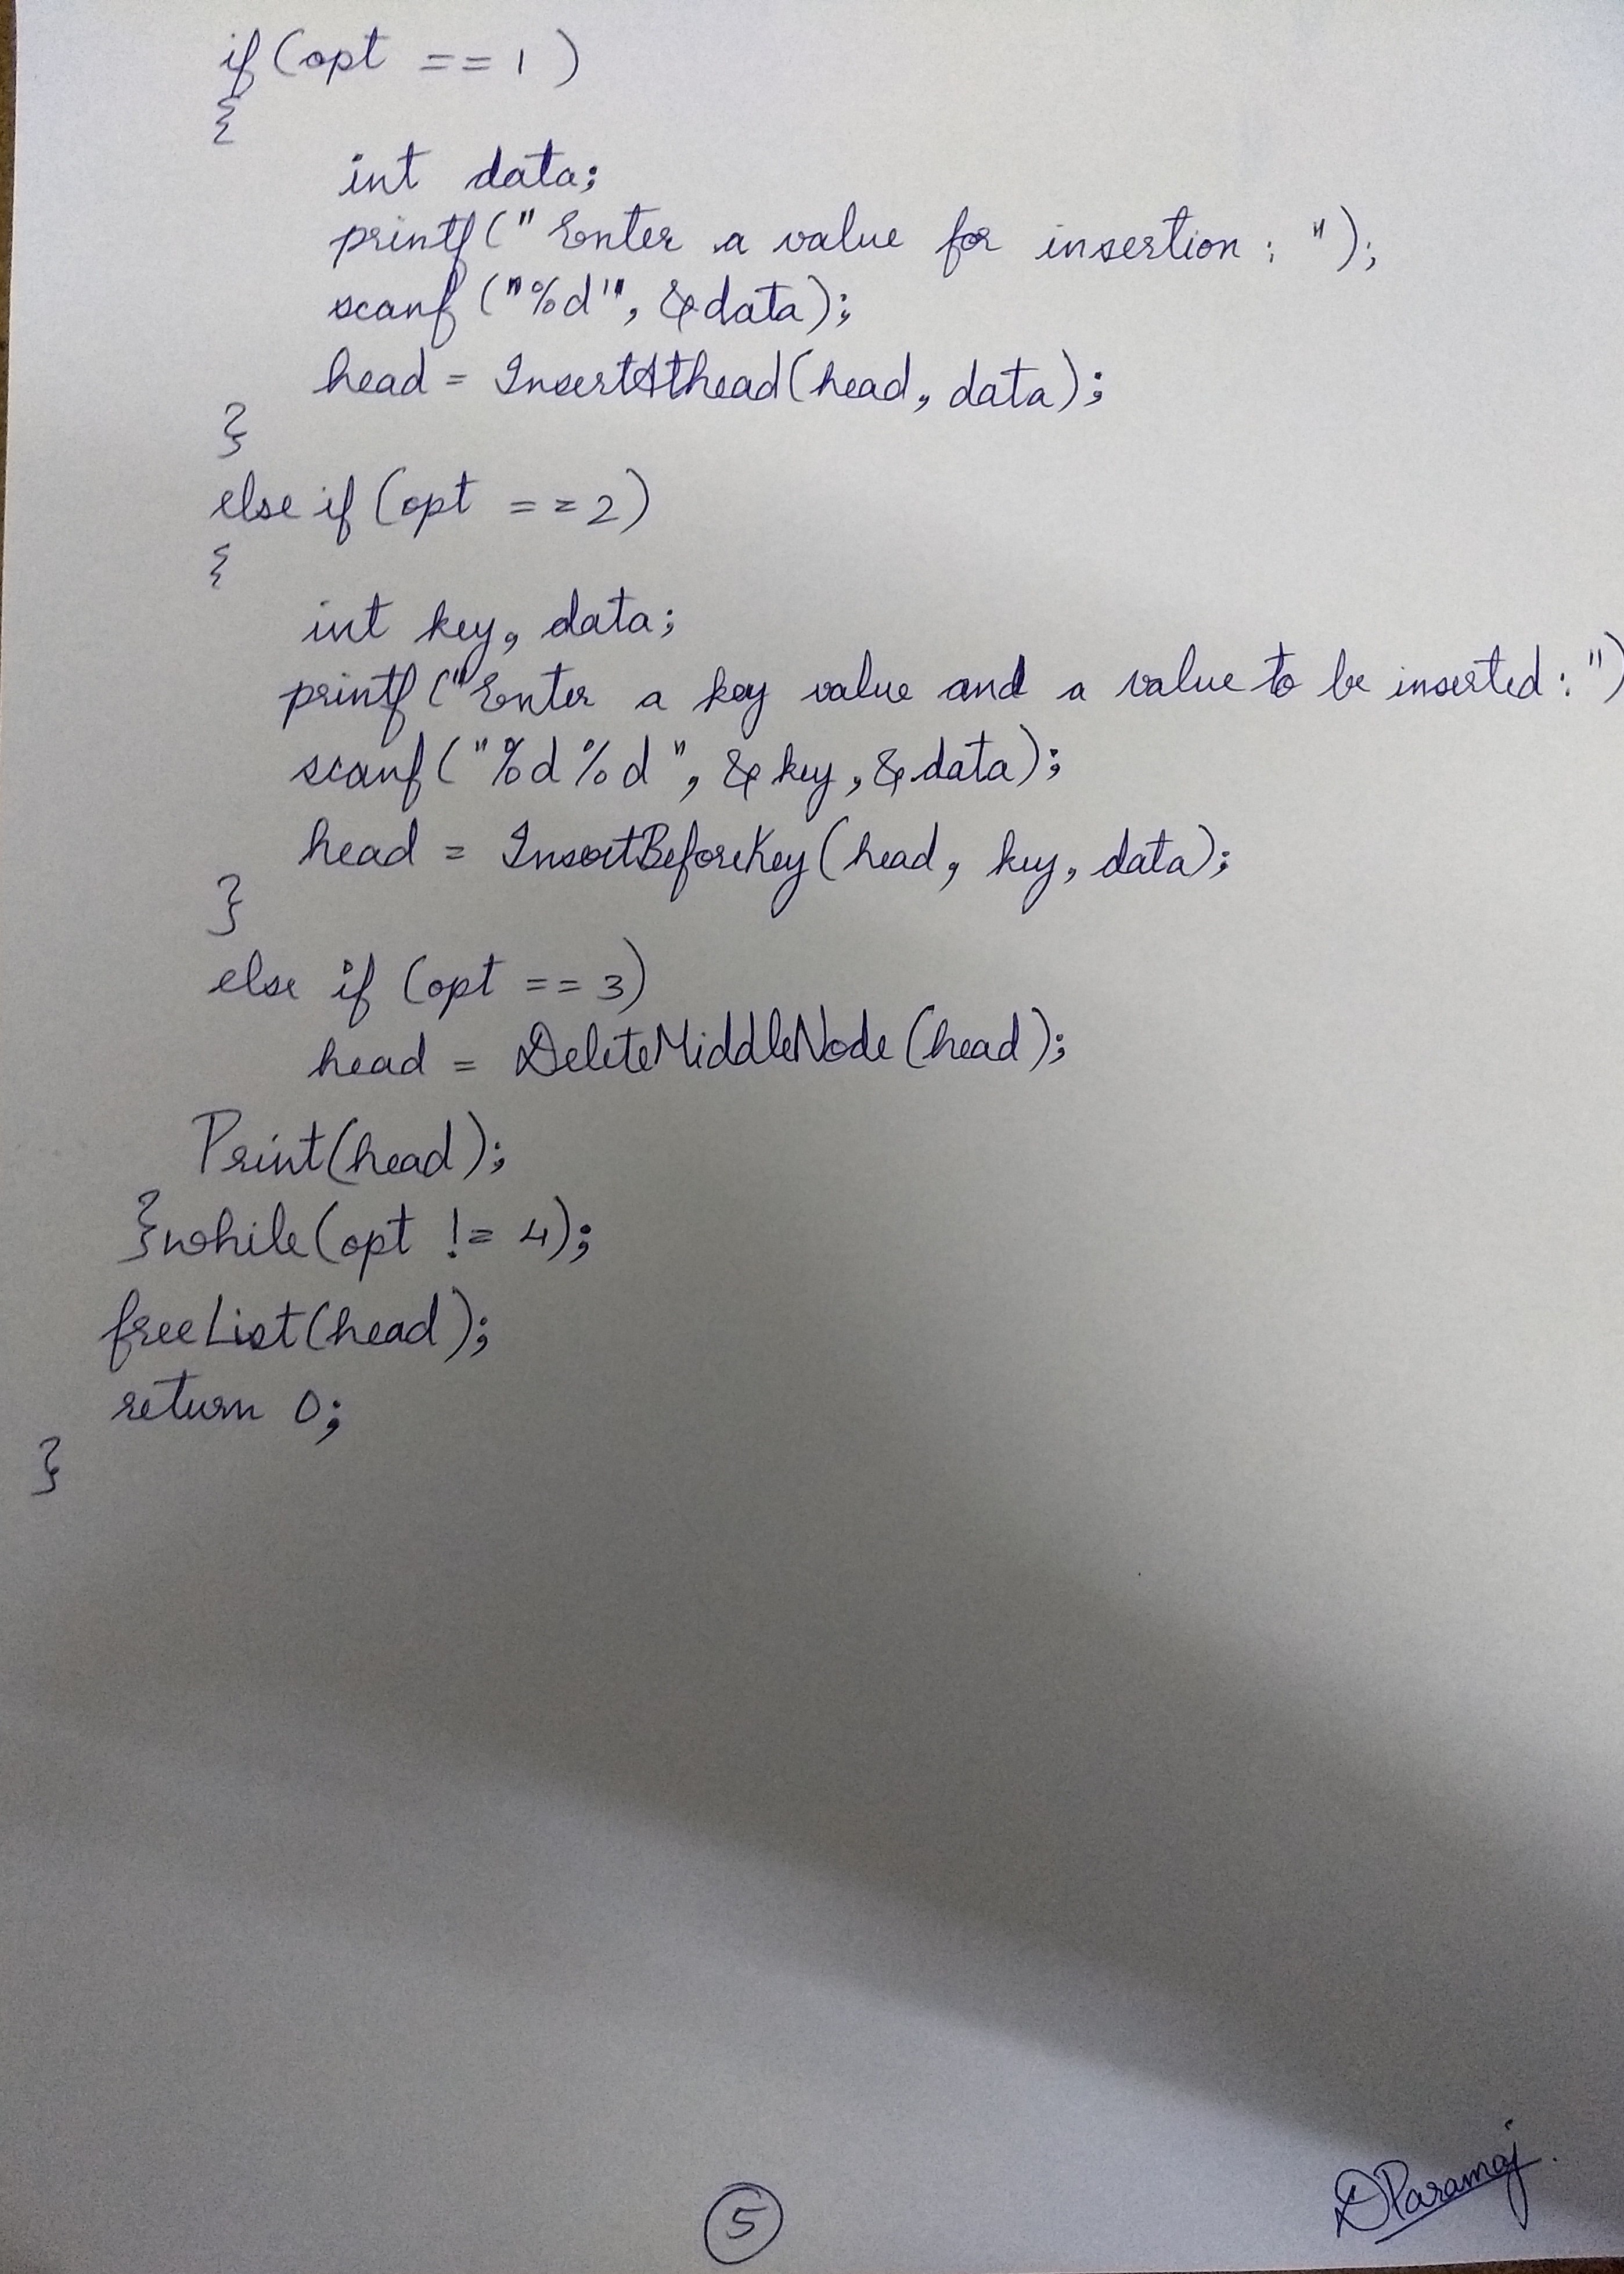 if (opt == 1)
{
int data;
printf("Enter a value for insertion : ");
scanf("%d", &data);
head = InsertAthead(head, data);
}
else if (opt == 2)
{
int key, data;
printf("Enter a key value and a value to be inserted : ")
scanf("%d%d", &key, &data);
head = InsertBeforeKey(head, key, data);
}
else if (opt == 3)
head = DeleteMiddleNode(head);
Print(head);
}while(opt != 4);
freeList(head);
return 0;
}
5